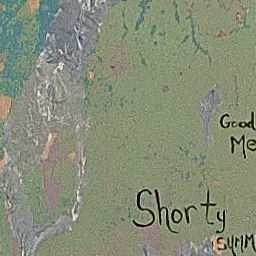 Good
Me
Shorty
SYMM